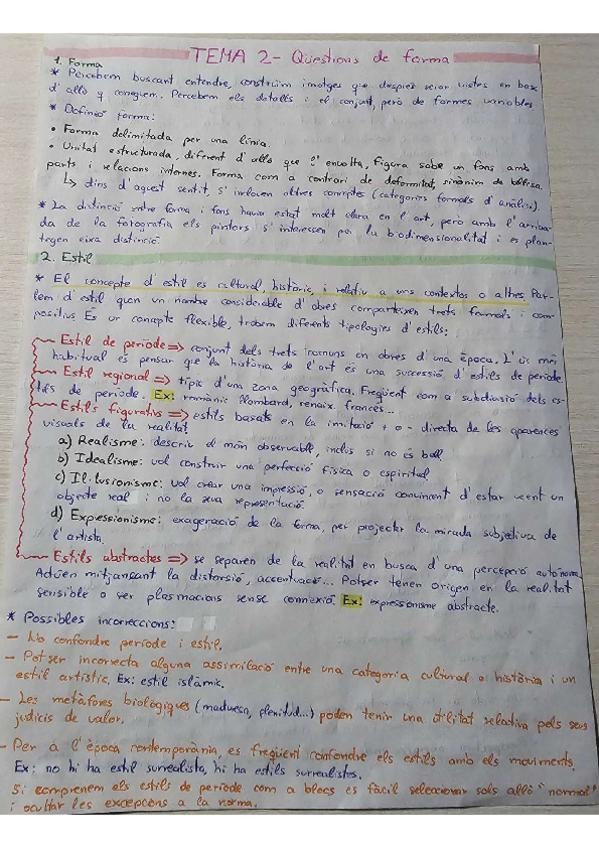 TEMA 2- Qüestions de forma
1. Forma
* Percebem buscant entendre, construim imatges que despres seran vistes en base
d'allò q coneguem. Percebem els detalls i el conjunt, però de formes variables
* Definió forma:
• Forma delimitada per una línia.
• Unitat estructurada, diferent d'allò que l'envolta, figura sobre un fons amb
parts i relacions internes. Forma com a contrari de deformitat, sinònim de bellesa.
↳ dins d'aquest sentit, s'inclouen altres conceptes (categories formals d'anàlisi).
* La distinció entre forma i fons havia estat molt clara en l'art, però amb l'arriba-
da de la fotografia els pintors s'interessen per la biodimensionalitat i es plan-
tegen eixa distinció.
2. Estil
* El concepte d'estil es cultural, històric, i relatiu a uns contextos o altres. Par-
lem d'estil quan un nombre considerable d'obres comparteixen trets formals i com-
positius. Es un concepte flexible, trobem diferents tipologies d'estils:
Estil de període => conjunt dels trets comuns en obres d'una època. L'ús més
habitual es pensar que la història de l'art és una successió d'estils de període.
Estil regional => típic d'una zona geogràfica. Freqüent com a subdivisió dels es-
tils de període. Ex: romànic llombard, renaix. francès...
Estils figuratius => estils basats en la imitació + o - directa de les aparences
visuals de la realitat
a) Realisme: descriu el món observable, inclús si no és bell
b) Idealisme: vol construir una perfecció física o espiritual.
c) Il·lusionisme: vol crear una impressió, o sensació convincent d'estar veent un
objecte real i no la seua representació.
d) Expressionisme: exageració de la forma, per projectar la mirada subjectiva de
l'artista.
Estils abstractes => se separen de la realitat en busca d'una percepció autònoma.
Actúen mitjançant la distorsió, accentuació... Potser tenen origen en la realitat
sensible o ser plasmacions sense connexió. Ex: expressionisme abstracte.
* Possibles incorreccions:
- No confondre període i estil.
- Pot ser incorrecta alguna assimilació entre una categoria cultural o històrica i un
estil artístic. Ex: estil islàmic.
- Les metàfores biològiques (maduresa, plenitud...) poden tenir una utilitat relativa pels seus
judicis de valor.
- Per a l'època contemporània, es freqüent confondre els estils amb els moviments.
Ex: no hi ha estil surrealista, hi ha estils surrealistes.
Si comprenem els estils de període com a blocs es fàcil seleccionar sols allò "normal"
i ocultar les excepcions a la norma.